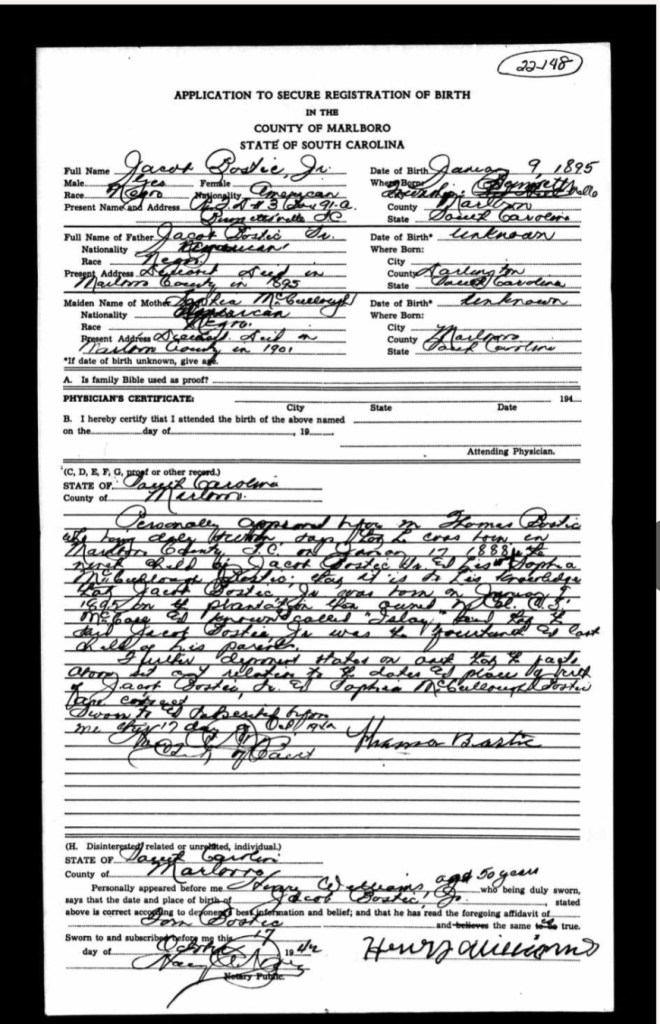 22-148
APPLICATION TO SECURE REGISTRATION OF BIRTH
IN THE
COUNTY OF MARLBORO
STATE OF SOUTH CAROLINA
Full Name Jacob Bostic, Jr. Date of Birth January 9, 1895
Male Yes Female Where Born:
Race Negro Nationality American
Present Name and Address # 3 County Marlboro
Bennettsville SC State South Carolina
Full Name of Father Jacob Bostic Sr. Date of Birth* Unknown
Nationality American Where Born:
Race Negro City
Present Address Died in County Darlington
Marlboro County in 1895 State South Carolina
Maiden Name of Mother Sophia McCullough Date of Birth* Unknown
Nationality American Where Born:
Race Negro City
Present Address Died in County Marlboro
Marlboro County in 1901 State South Carolina
*If date of birth unknown, give age.
A. Is family Bible used as proof?
PHYSICIAN'S CERTIFICATE: 194
City State Date
B. I hereby certify that I attended the birth of the above named
on the day of , 19
Attending Physician.
(C, D, E, F, G, proof or other record.)
STATE OF South Carolina
County of Marlboro
Personally appeared before me Thomas Bostic
who being duly sworn, says that he was born in
Marlboro County, S.C. on January 17 1888, the
child of Jacob Bostic Sr. his Sophia
McCullough Bostic; that it is to his knowledge
that Jacob Bostic, Jr. was born on January 9,
1895 on the plantation owned by Col. C.S.
McCall known called and that the
said Jacob Bostic, Jr. was the fourteenth last
child of his parents.
Further deponent states on oath that the facts
above set out relative to the dates place of birth
of Jacob Bostic, Jr. Sophia McCullough Bostic
are correct
Sworn to subscribed before
me this 17 day of
of Court Thomas Bostic
(H. Disinterested related or unrelated, individual.)
STATE OF South Carolina
County of Marlboro
Personally appeared before me Henry Williams, age 50 years who being duly sworn,
says that the date and place of birth of Jacob Bostic, Jr. , stated
above is correct according to deponent's best information and belief; and that he has read the foregoing affidavit of
Tom Bostic and believes the same to be true.
Sworn to and subscribed before me this 17
day of 1942 Henry Williams
Notary Public.